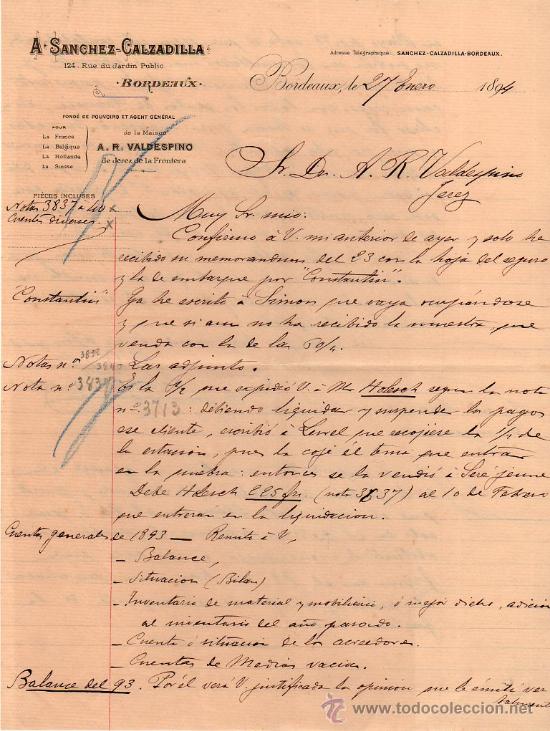 A. SANCHEZ-CALZADILLA
124, Rue du Jardin Public
BORDEAUX
Adresse Télégraphique: SANCHEZ-CALZADILLA-BORDEAUX.
Bordeaux, le 27 Enero 1894
FONDÉ DE POUVOIRS ET AGENT GÉNÉRAL
POUR
La France
La Belgique
La Hollande
La Suisse
de la Maison
A. R. VALDESPINO
de Jerez de la Frontera
Sr. Dn. A. R. Valdespino
Jerez
PIÈCES INCLUSES
Notas 3837 a 40
Cuentas diversas
Muy Sr. mio:
Confirmo á V. mi anterior de ayer y solo he
recibido su memorandum del 23 con la hoja del seguro
y la de embarque por "Constantin".
"Constantin"
Ya he escrito á Simon que vaya ocupándose
y que si aun no ha recibido la muestra que
venda con la de las 60/4.
Notas nos 3838/3840
Las adjunto.
Nota no 3837
Es la que expidió V. á Mr Holesch segun la nota
no 3713: debiendo liquidar y suspender los pagos
ese cliente, escribió á que recojiese la de
la estacion, pues la cojé él tener que entrar
en la quiebra: entonces se la vendió á Seréjeune
Debe Holesch 225 frs (nota 3837) al 10 de Febrero
que entrarán en la liquidacion.
Cuentas generales de 1893 — Remito á V,
— Balance,
— Situacion (Bilan)
— Inventario de material y mobiliario, ó mejor dicho, adicion
al inventario del año pasado.
— Cuenta ó situacion de los acreedores.
— Cuentas de Medias vacias.
Balance del 93. Por él verá V. justificada la opinion que le emití ver-
balmente
todocoleccion.net